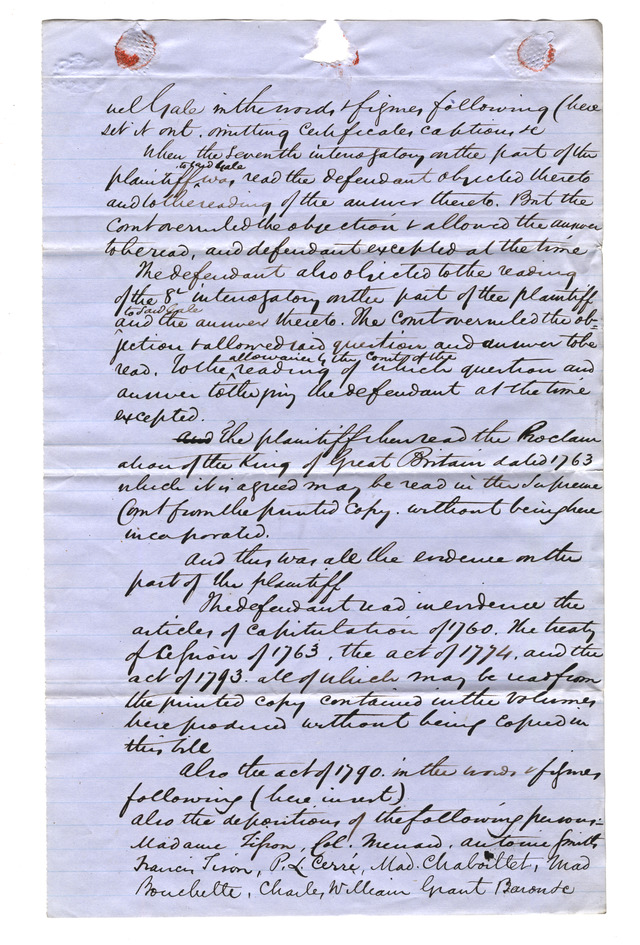 uel Gale in the words & figures following (here
set it out. omitting certificates captions &c
When the seventh interrogatory on the part of the
to said Gale
plaintiff was read the defendant objected thereto
and to the reading of the answer thereto. But the
Court overruled the objection & allowed the answer
to be read, and defendant excepted at the time
The defendant also objected to the reading
of the 8th interrogatory on the part of the plaintiff
to said Gale
and the answer thereto. The Court overruled the ob-
jection & allowed said question and answer to be
allowance by the Court of the
read. To the reading of which question and
answer to the jury the defendant at the time
excepted.
and The plaintiff then read the Proclam
ation of the King of Great Britain dated 1763
which it is agreed may be read in the Supreme
Court from the printed copy. without being here
incorporated.
And this was all the evidence on the
part of the plaintiff
The defendant read in evidence the
articles of capitulation of 1760. The treaty
of Cession of 1763, the act of 1774, and the
act of 1793. all of which may be read from
the printed copy contained in the volumes
here produced without being copied in
this bill
Also the act of 1790. in the words & figures
following (here insert)
also the depositions of the following persons=
Madame Tison, Col. Menard, Antoine Smith
Francis Tison, P. L. Cerré, Mad. Chaboillet, Mad
Bouchette, Charles William Grant Baron &c